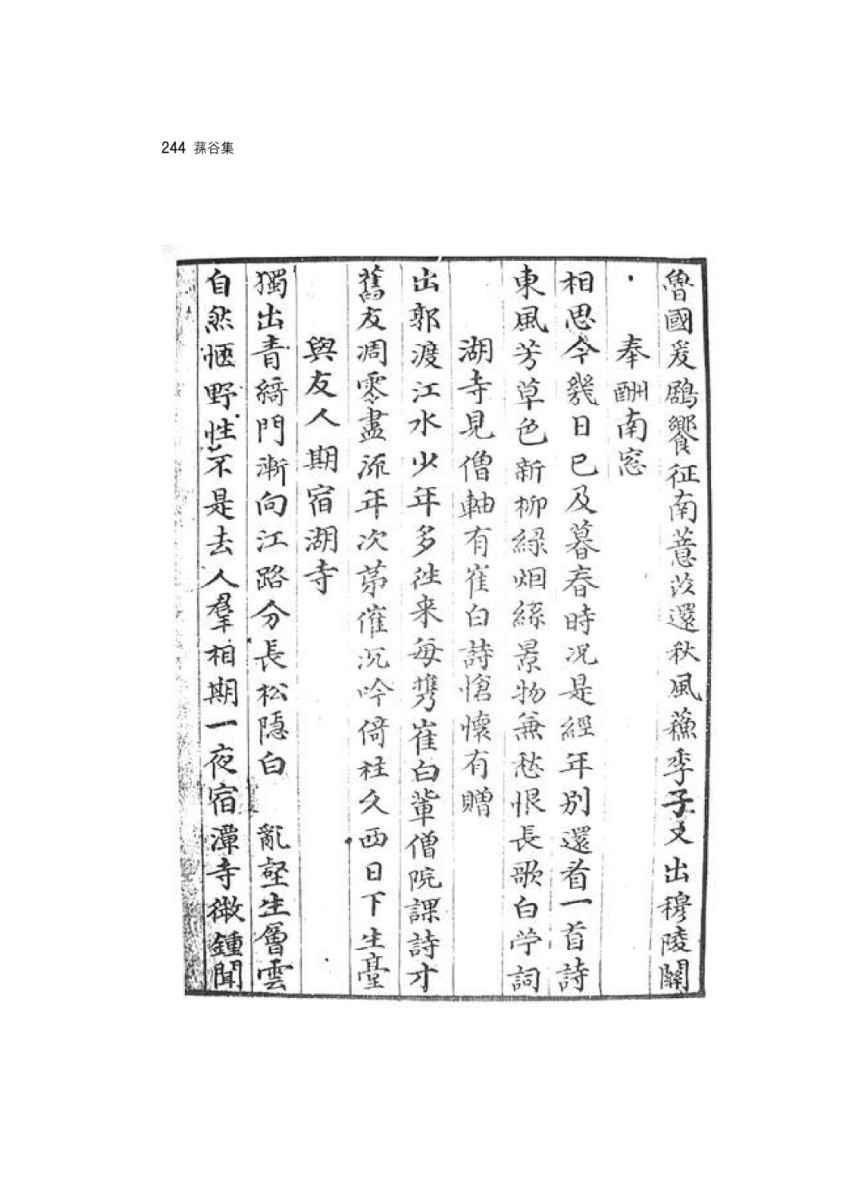 244 蓀谷集
魯國爰鶋饗征南薏苡還秋風蘓季子又出穆陵關
奉酬南窓
相思今幾日已及暮春時况是經年别還看一首詩
東風芳草色新柳緑烟絲景物兼愁恨長歌白苧詞
湖寺見僧軸有崔白詩愴懷有贈
出郭渡江水少年多徃来每携崔白輩僧院課詩才
舊友凋零盡流年次苐催沉吟倚柱久西日下生臺
與友人期宿湖寺
獨出青綺門漸向江路分長松隱白 亂壑生層雲
自然愜野性不是去人羣相期一夜宿潭寺微鍾聞